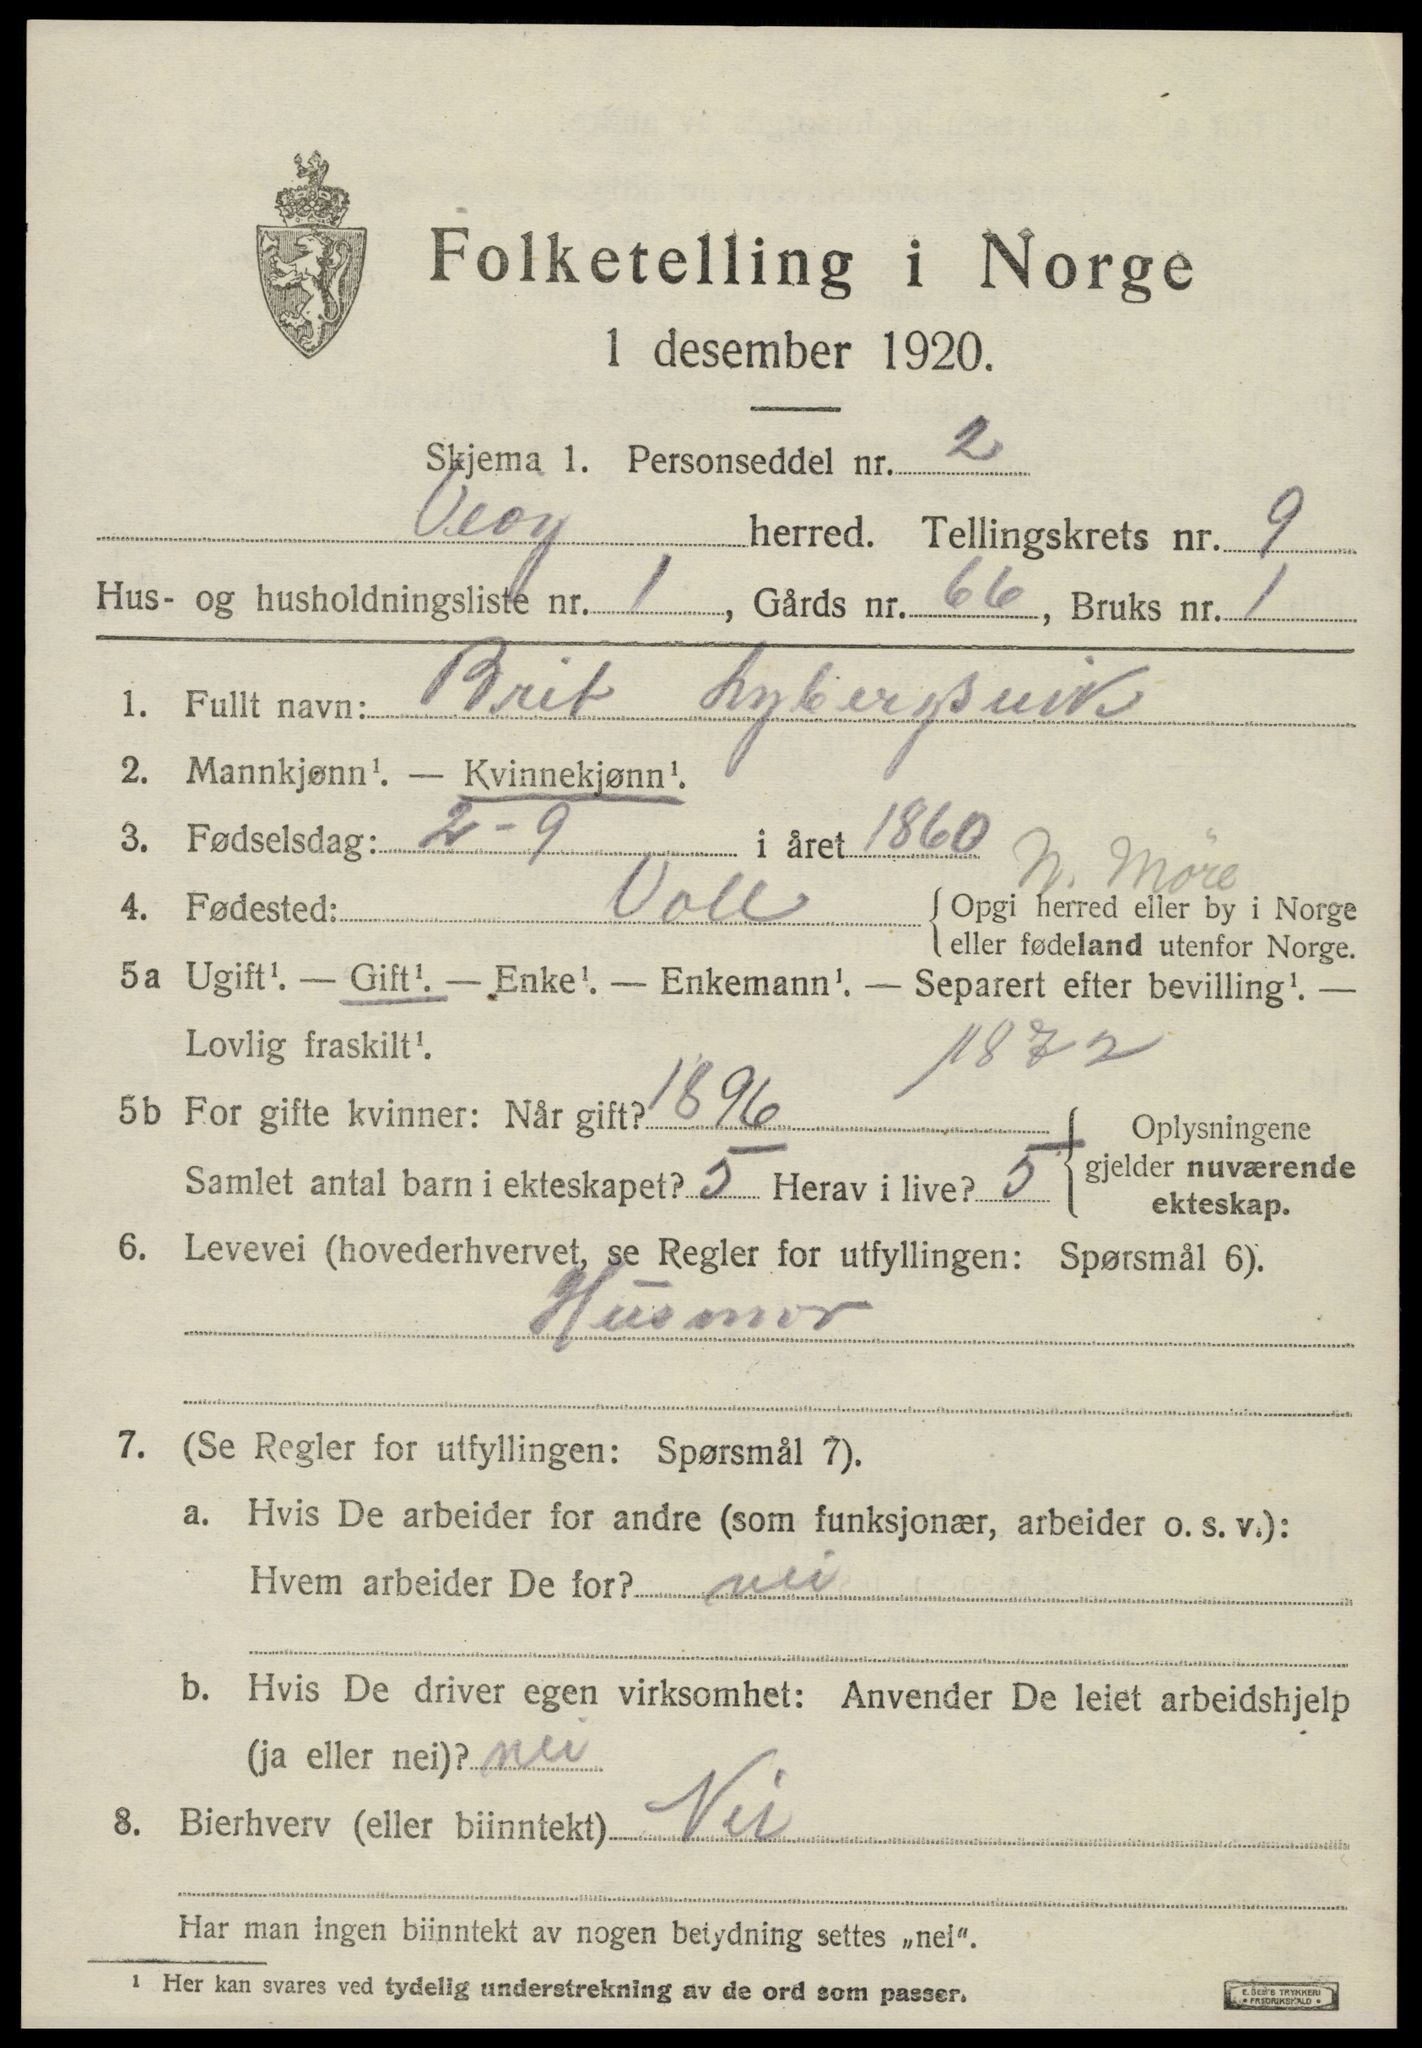 Folketelling i Norge
1 desember 1920.
Skjema 1. Personseddel nr. 2
Veøy herred. Tellingskrets nr. 9
Hus- og husholdningsliste nr. 1, Gårds nr. 66, Bruks nr. 1
1. Fullt navn: Brit Lybergsvik
2. Mannkjønn¹. — Kvinnekjønn¹.
3. Fødselsdag: 2-9 i året 1860
N. Möre
4. Fødested: Voll {Opgi herred eller by i Norge
eller fødeland utenfor Norge.
5a Ugift¹. — Gift¹. — Enke¹. — Enkemann¹. — Separert efter bevilling¹. —
Lovlig fraskilt¹.
1872
5b For gifte kvinner: Når gift? 1896
Samlet antal barn i ekteskapet? 5 Herav i live? 5
{Oplysningene
gjelder nuværende
ekteskap.
6. Levevei (hovederhvervet, se Regler for utfyllingen: Spørsmål 6).
Husmor
7. (Se Regler for utfyllingen: Spørsmål 7).
a. Hvis De arbeider for andre (som funksjonær, arbeider o. s. v.):
Hvem arbeider De for? nei
b. Hvis De driver egen virksomhet: Anvender De leiet arbeidshjelp
(ja eller nei)? nei
8. Bierhverv (eller biinntekt) Nei
Har man ingen biinntekt av nogen betydning settes „nei“.
¹ Her kan svares ved tydelig understrekning av de ord som passer.
E. BERG'S TRYKKERI
• FREDRIKSHALD •